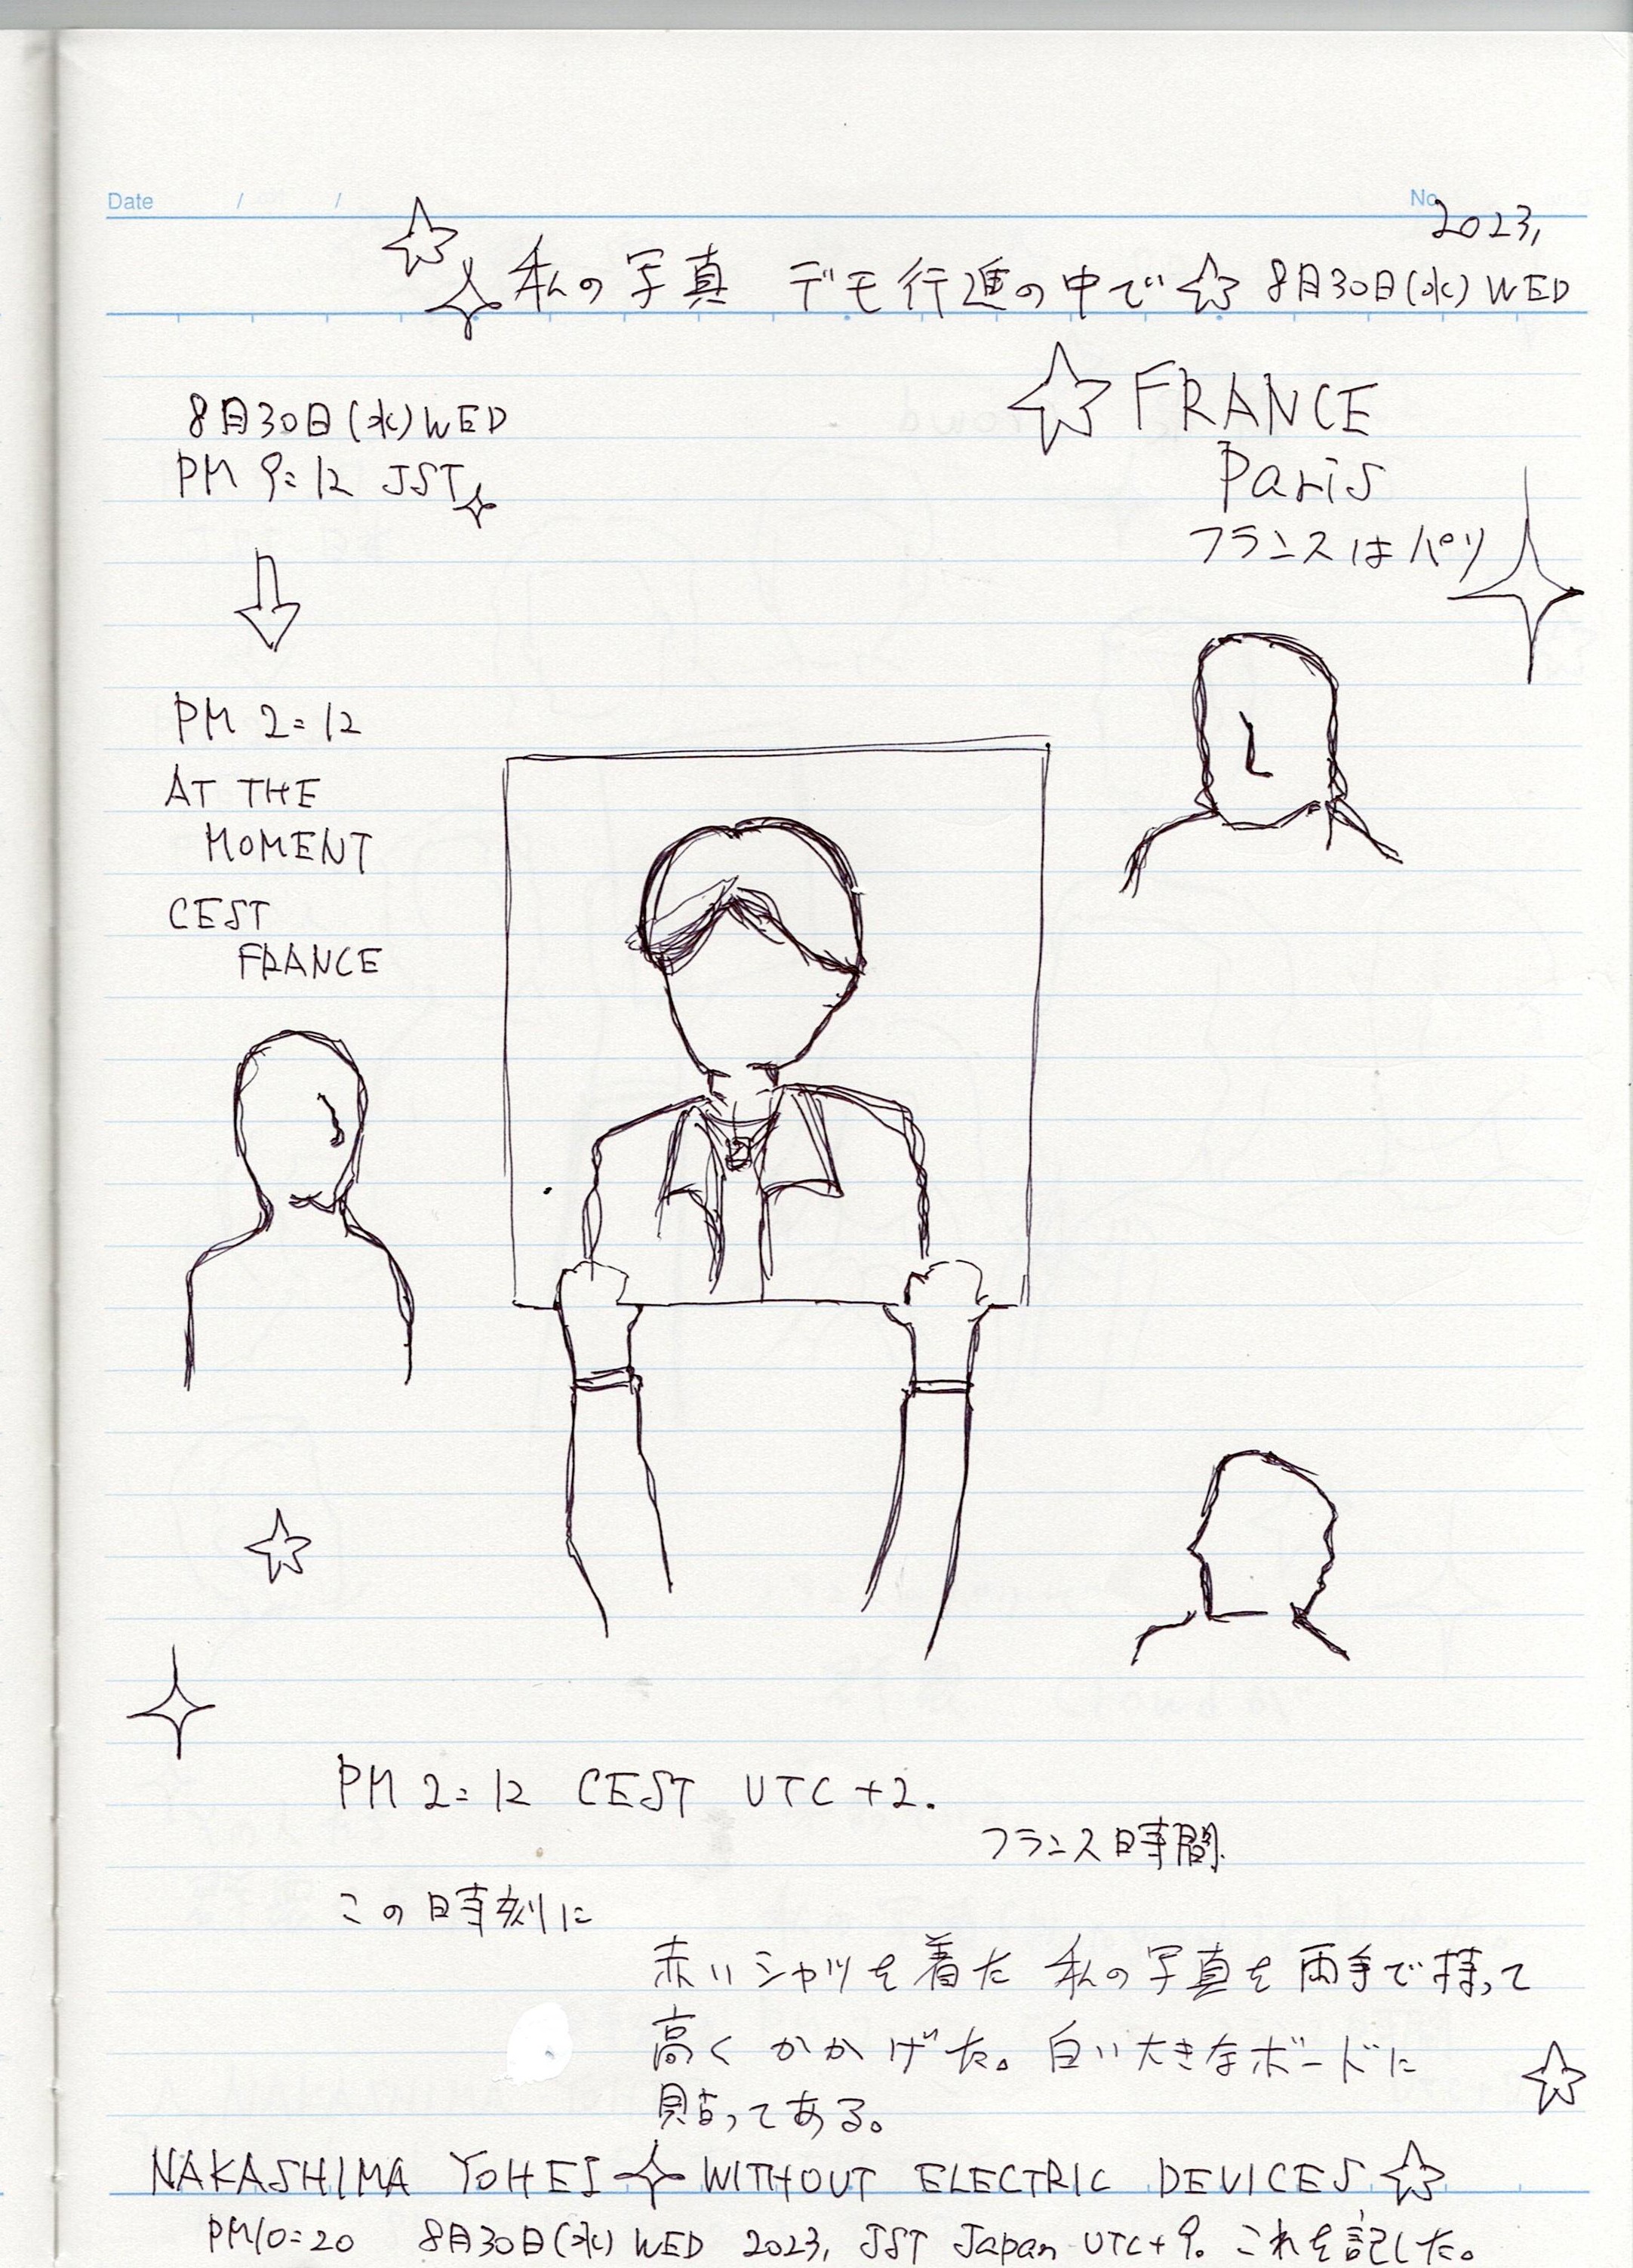 Date / /
No.
2023,
私の写真 デモ行進の中で 8月30日(水) WED
FRANCE
Paris
フランスはパリ
8月30日(水) WED
PM 9:12 JST
PM 2:12
AT THE
MOMENT
CEST
FRANCE
PM 2:12 CEST UTC +2.
フランス時間
この時刻に
赤いシャツを着た 私の写真を両手で持って
高く かかげた。白い大きなボードに
貼ってある。
NAKASHIMA YOHEI WITHOUT ELECTRIC DEVICES
PM10:20 8月30日(水) WED 2023, JST Japan UTC+9. これを記した。